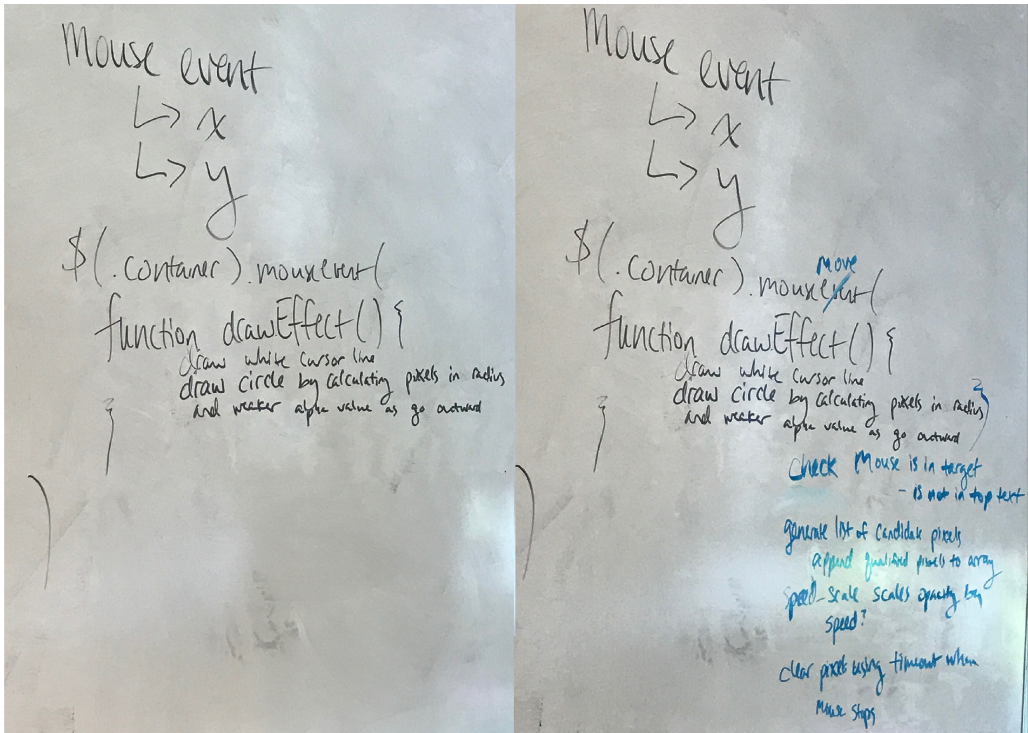 Mouse event
↳ x
↳ y
$(.container).mouseevent(
function drawEffect() {
draw white cursor line
draw circle by calculating pixels in radius
and weaker alpha value as go outward
}
)
Mouse event
↳ x
↳ y
move
$(.container).mouseevent(
function drawEffect() {
draw white cursor line
draw circle by calculating pixels in radius
and weaker alpha value as go outward
}
)
?
check Mouse is in target
- is not in top text
generate list of candidate pixels
append qualified pixels to array
speed_scale scales opacity by
speed?
clear pixel using timeout when
Mouse stops